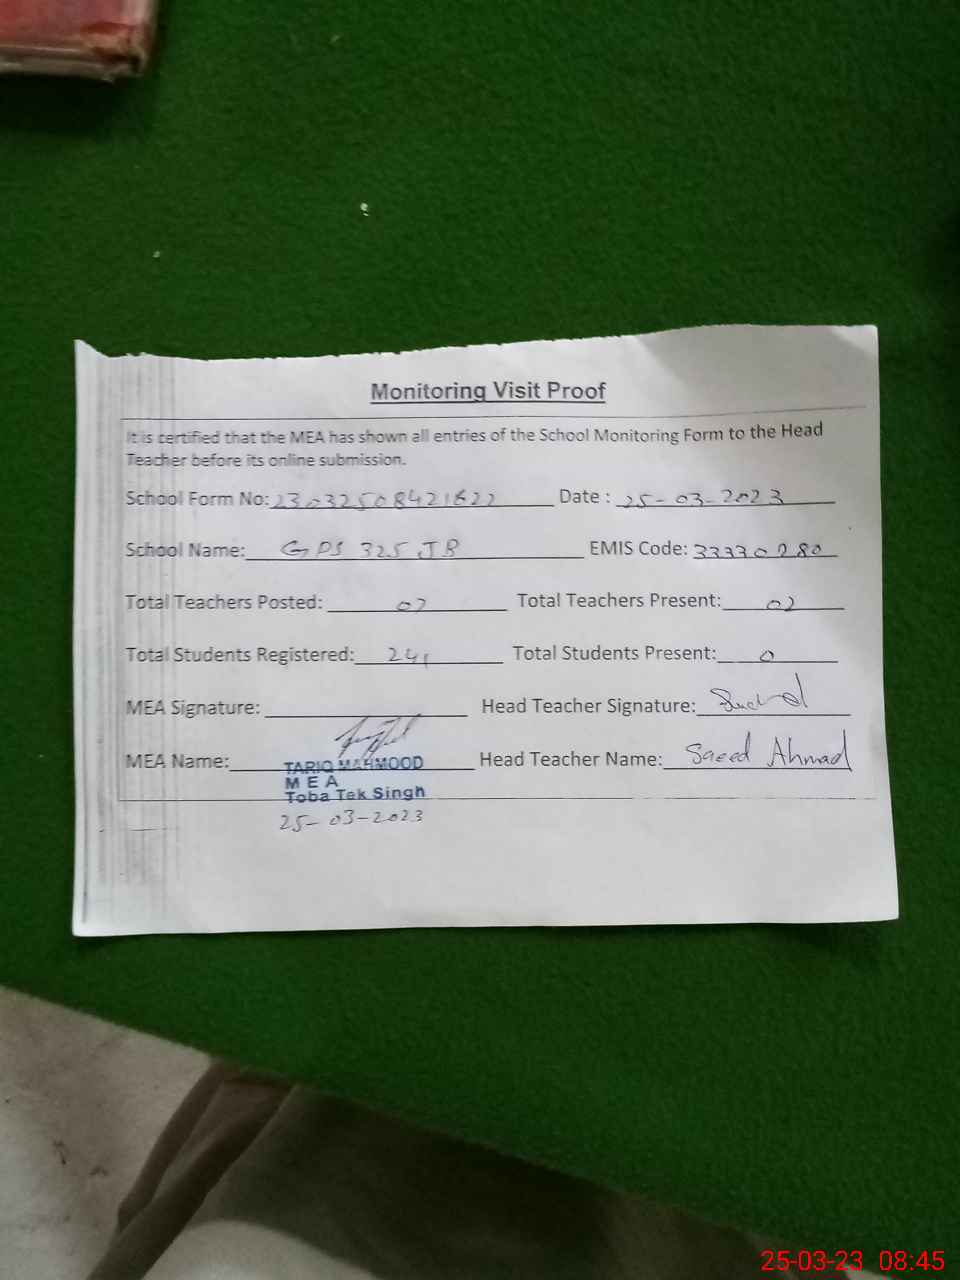 Monitoring Visit Proof
It is certified that the MEA has shown all entries of the School Monitoring Form to the Head
Teacher before its online submission.
School Form No: 23032508421622 Date : 25-03-2023
School Name: GPS 325 JB EMIS Code: 33330280
Total Teachers Posted: 02 Total Teachers Present: 02
Total Students Registered: 241 Total Students Present: 0
MEA Signature: Head Teacher Signature:
MEA Name: Head Teacher Name: Saeed Ahmad
TARIQ MAHMOOD
M E A
Toba Tek Singh
25-03-2023
25-03-23 08:45